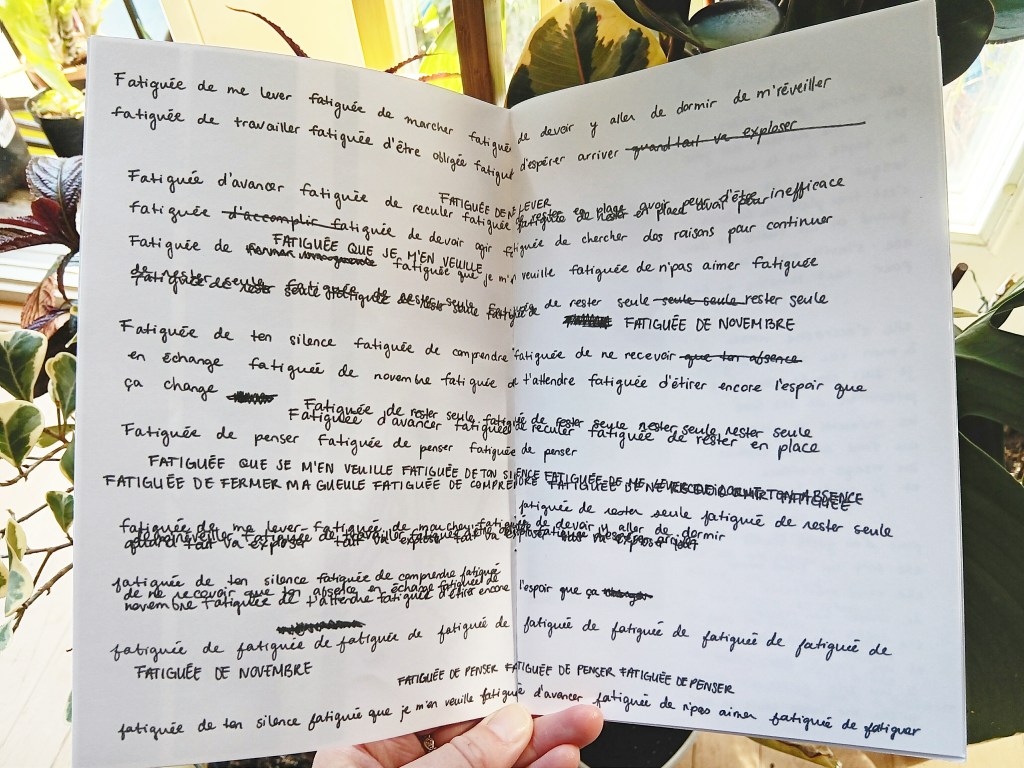 Fatiguée de me lever fatiguée de marcher fatiguée de devoir y aller de dormir de m'réveiller
fatiguée de travailler fatiguée d'être obligée fatigué d'espérer arriver quand tout va exploser
FATIGUÉE DE ME LEVER
Fatiguée d'avancer fatiguée de reculer fatiguée de rester en place avoir peur d'être inefficace
fatiguée d'accomplir fatiguée de devoir agir fatiguée de chercher des raisons pour continuer
FATIGUÉE QUE JE M'EN VEUILLE
Fatiguée de fatiguée que je m'en veuille fatiguée de n'pas aimer fatiguée
de rester seule fatiguée de rester seule de rester seule seule seule rester seule
FATIGUÉE DE NOVEMBRE
Fatiguée de ton silence fatiguée de comprendre fatiguée de ne recevoir que ton absence
en échange fatiguée de novembre fatiguée de t'attendre fatiguée d'étirer encore l'espoir que
ça change
Fatiguée de rester seule fatiguée de rester seule rester seule rester seule
Fatiguée d'avancer fatiguée de reculer fatiguée de rester en place
Fatiguée de penser fatiguée de penser fatiguée de penser
FATIGUÉE QUE JE M'EN VEUILLE FATIGUÉE DE TON SILENCE FATIGUÉE DE ME LEVER
FATIGUÉE DE FERMER MA GUEULE FATIGUÉE DE COMPRENDRE FATIGUÉE DE NE TON ABSENCE
fatiguée de rester seule fatiguée de rester seule
fatiguée de me lever fatiguée de marcher fatiguée de devoir y aller de dormir
de m'réveiller fatiguée de travailler fatiguée d'être fatiguée d'espérer arriver
quand tout va exploser tout va exploser tout va exploser tout va exploser tout
fatiguée de ton silence fatiguée de comprendre fatiguée
de ne recevoir que ton absence en échange fatiguée de
novembre fatiguée de t'attendre fatiguée d'étirer encore l'espoir que ça
fatiguée de fatiguée de fatiguée de fatiguée de fatiguée de fatiguée de fatiguée de fatiguée de
FATIGUÉE DE NOVEMBRE
FATIGUÉE DE PENSER FATIGUÉE DE PENSER FATIGUÉE DE PENSER
fatiguée de ton silence fatiguée que je m'en veuille fatiguée d'avancer fatiguée de n'pas aimer fatiguée de fatiguer